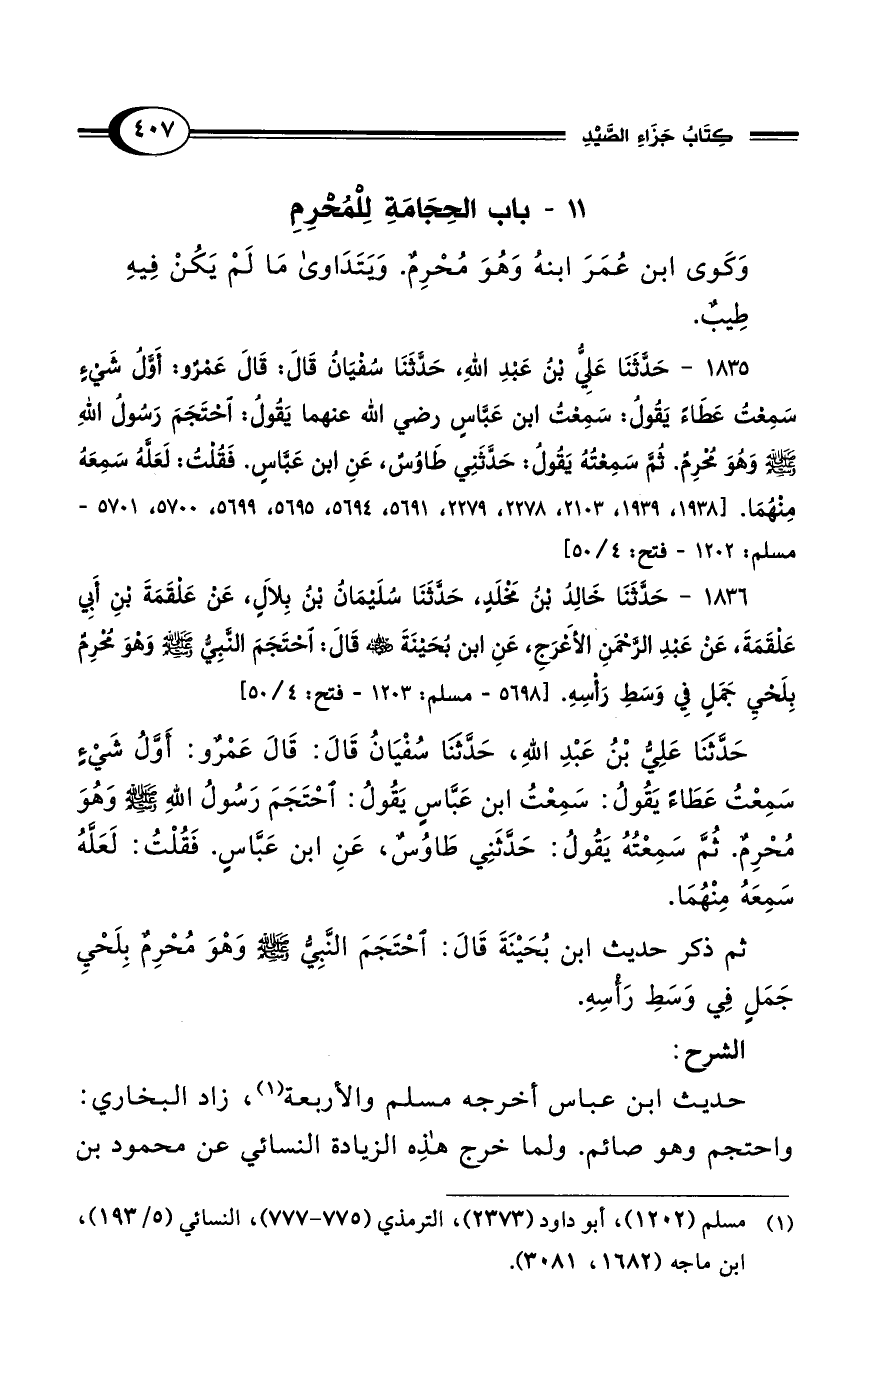 كِتَابُ جَزَاءِ الصَّيْدِ ٤٠٧
١١ - باب الحِجَامَةِ لِلْمُحْرِمِ
وَكَوى ابن عُمَرَ ابنهُ وَهُوَ مُحْرِمٌ. وَيَتَدَاوىٰ مَا لَمْ يَكُنْ فِيهِ
طِيبٌ.
١٨٣٥ - حَدَّثَنَا عَلِيُّ بْنُ عَبْدِ اللهِ، حَدَّثَنَا سُفْيَانُ قَالَ: قَالَ عَمْرٌو: أَوَّلُ شَيْءٍ
سَمِعْتُ عَطَاءً يَقُولُ: سَمِعْتُ ابن عَبَّاسٍ رضي الله عنهما يَقُولُ: ٱحْتَجَمَ رَسُولُ اللهِ
ﷺ وَهُوَ مُحْرِمٌ. ثُمَّ سَمِعْتُهُ يَقُولُ: حَدَّثَنِي طَاوُسٌ، عَنِ ابن عَبَّاسٍ. فَقُلْتُ: لَعَلَّهُ سَمِعَهُ
مِنْهُمَا. [١٩٣٨، ١٩٣٩، ٢١٠٣، ٢٢٧٨، ٢٢٧٩، ٥٦٩١، ٥٦٩٤، ٥٦٩٥، ٥٦٩٩، ٥٧٠٠، ٥٧٠١ -
مسلم: ١٢٠٢ - فتح: ٤/ ٥٠]
١٨٣٦ - حَدَّثَنَا خَالِدُ بْنُ مَخْلَدٍ، حَدَّثَنَا سُلَيْمَانُ بْنُ بِلَالٍ، عَنْ عَلْقَمَةَ بْنِ أَبِي
عَلْقَمَةَ، عَنْ عَبْدِ الرَّحْمَنِ الأَعْرَجِ، عَنِ ابن بُحَيْنَةَ ﵁ قَالَ: ٱحْتَجَمَ النَّبِيُّ ﷺ وَهْوَ مُحْرِمٌ
بِلَحْيِ جَمَلٍ فِي وَسَطِ رَأْسِهِ. [٥٦٩٨ - مسلم: ١٢٠٣ - فتح: ٤/ ٥٠]
حَدَّثَنَا عَلِيُّ بْنُ عَبْدِ اللهِ، حَدَّثَنَا سُفْيَانُ قَالَ: قَالَ عَمْرٌو: أَوَّلُ شَيْءٍ
سَمِعْتُ عَطَاءً يَقُولُ: سَمِعْتُ ابن عَبَّاسٍ يَقُولُ: ٱحْتَجَمَ رَسُولُ اللهِ ﷺ وَهُوَ
مُحْرِمٌ. ثُمَّ سَمِعْتُهُ يَقُولُ: حَدَّثَنِي طَاوُسٌ، عَنِ ابن عَبَّاسٍ. فَقُلْتُ: لَعَلَّهُ
سَمِعَهُ مِنْهُمَا.
ثم ذكر حديث ابن بُحَيْنَةَ قَالَ: ٱحْتَجَمَ النَّبِيُّ ﷺ وَهْوَ مُحْرِمٌ بِلَحْيِ
جَمَلٍ فِي وَسَطِ رَأْسِهِ.
الشرح:
حديث ابن عباس أخرجه مسلم والأربعة(١)، زاد البخاري:
واحتجم وهو صائم. ولما خرج هٰذِه الزيادة النسائي عن محمود بن
(١) مسلم (١٢٠٢)، أبو داود (٢٣٧٣)، الترمذي (٧٧٥-٧٧٧)، النسائي (٥/ ١٩٣)،
ابن ماجه (١٦٨٢، ٣٠٨١).